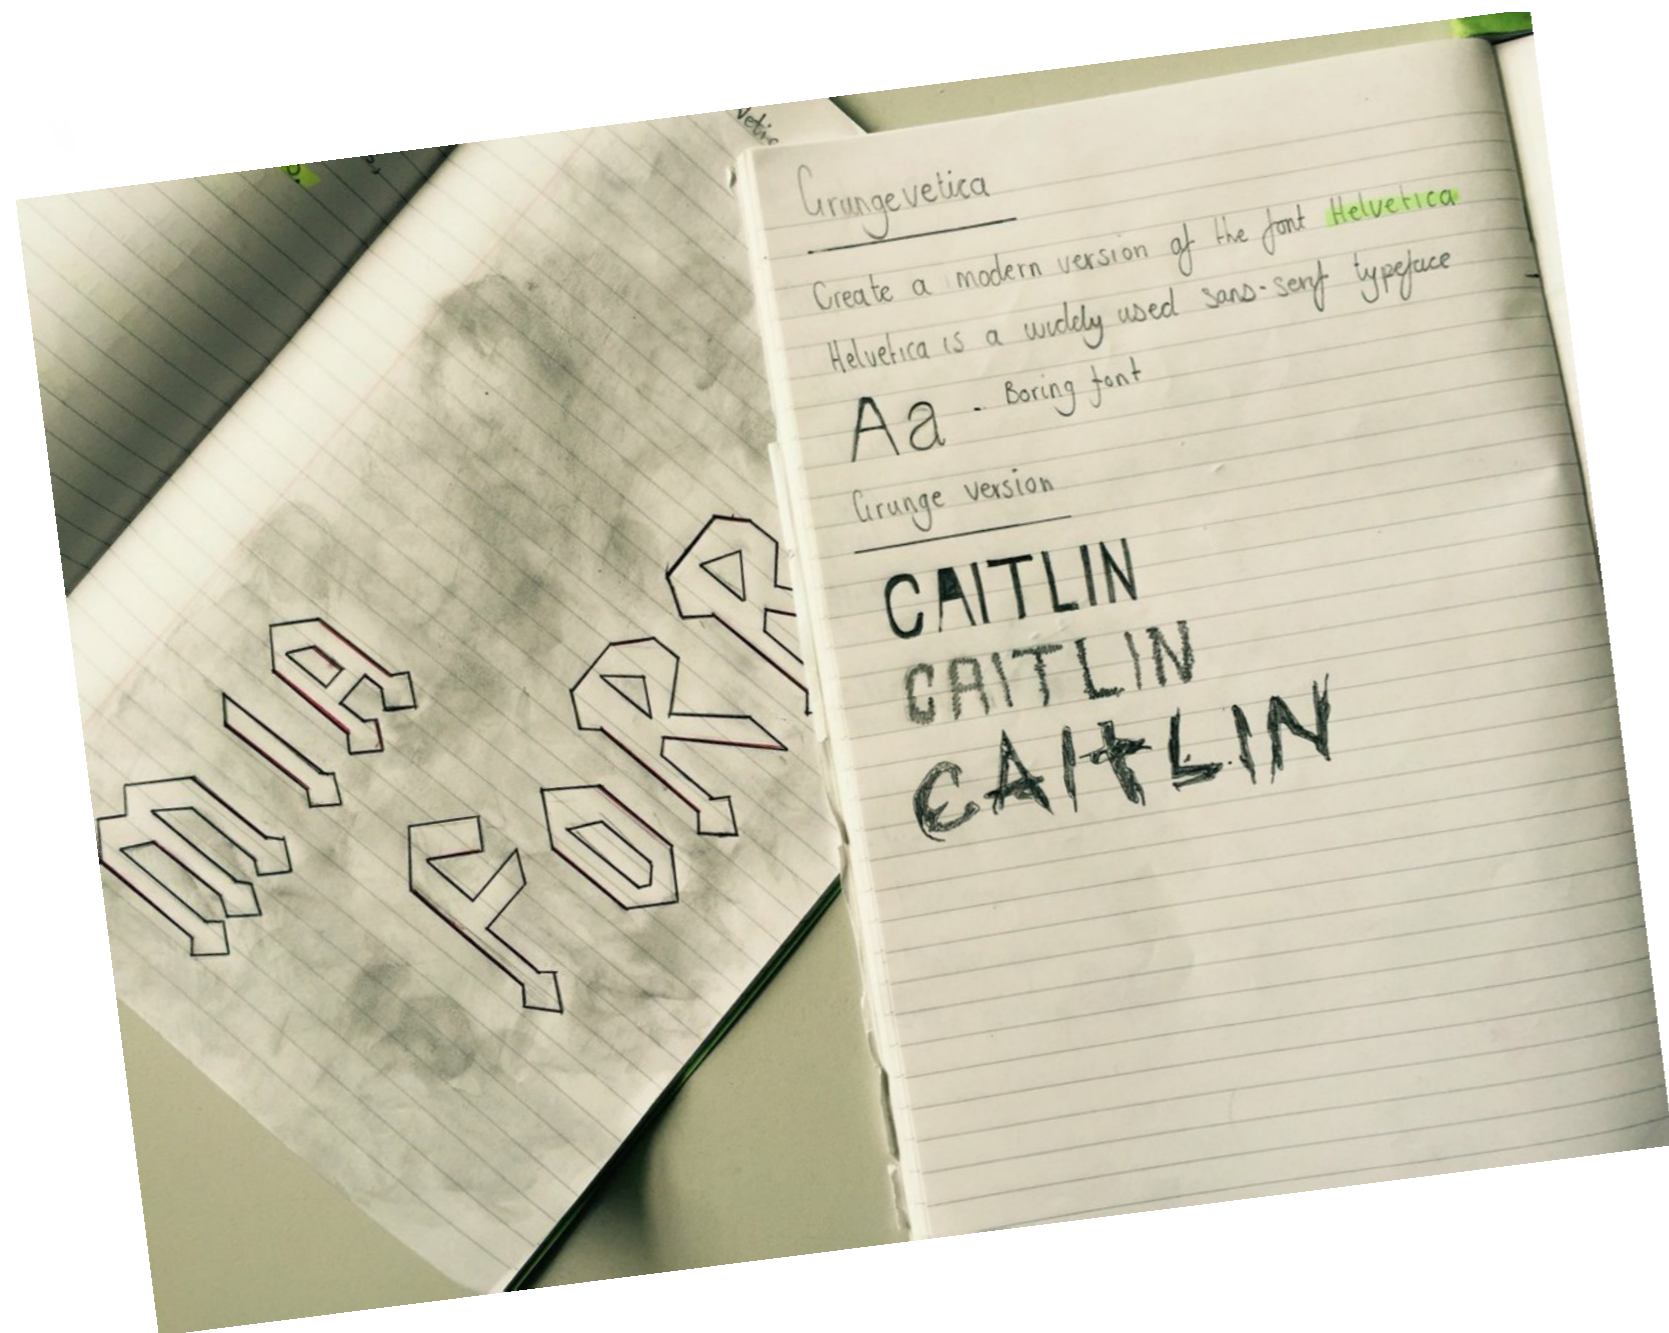 MIA
FORR
Grungevetica
Create a modern version of the font Helvetica
Helvetica is a widely used sans-serif typeface
Aa - Boring font
Grunge version
CAITLIN
CAITLIN
CAITLIN